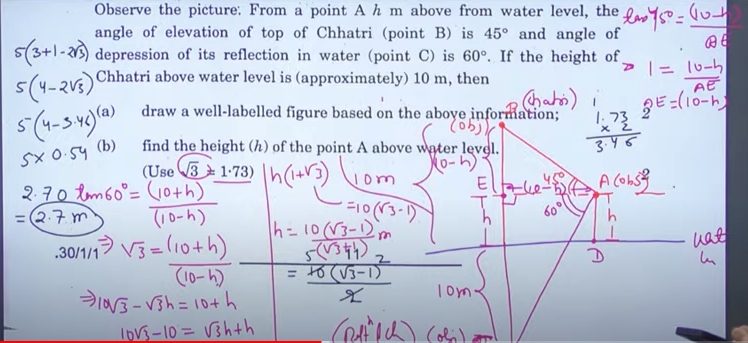 Observe the picture. From a point A h m above from water level, the
angle of elevation of top of Chhatri (point B) is 45° and angle of
depression of its reflection in water (point C) is 60°. If the height of
Chhatri above water level is (approximately) 10 m, then
(a) draw a well-labelled figure based on the above information;
(b) find the height (h) of the point A above water level.
(Use √3 = 1·73)
.30/1/1
5(3+1-2√3)
5(4-2√3)
5(4-3.46)
5×0.54
2.70
=2.7m
tan60°=(10+h)
(10-h)
⇒√3=(10+h)
(10-h)
⇒10√3-√3h=10+h
10√3-10=√3h+h
h(1+√3)
=10(√3-1)
h=10(√3-1) m
(√3+1)
5 2
=10(√3-1)
2
tan45°=(10-h)
AE
⇒ 1=10-h
AE
AE=(10-h)
1.73
×2
3.46
B (Chatri)
(obj)
(10-h)
10m
E
(10-h)
45°
60°
A (obs)
h
h
D
wat
10m
(obj)